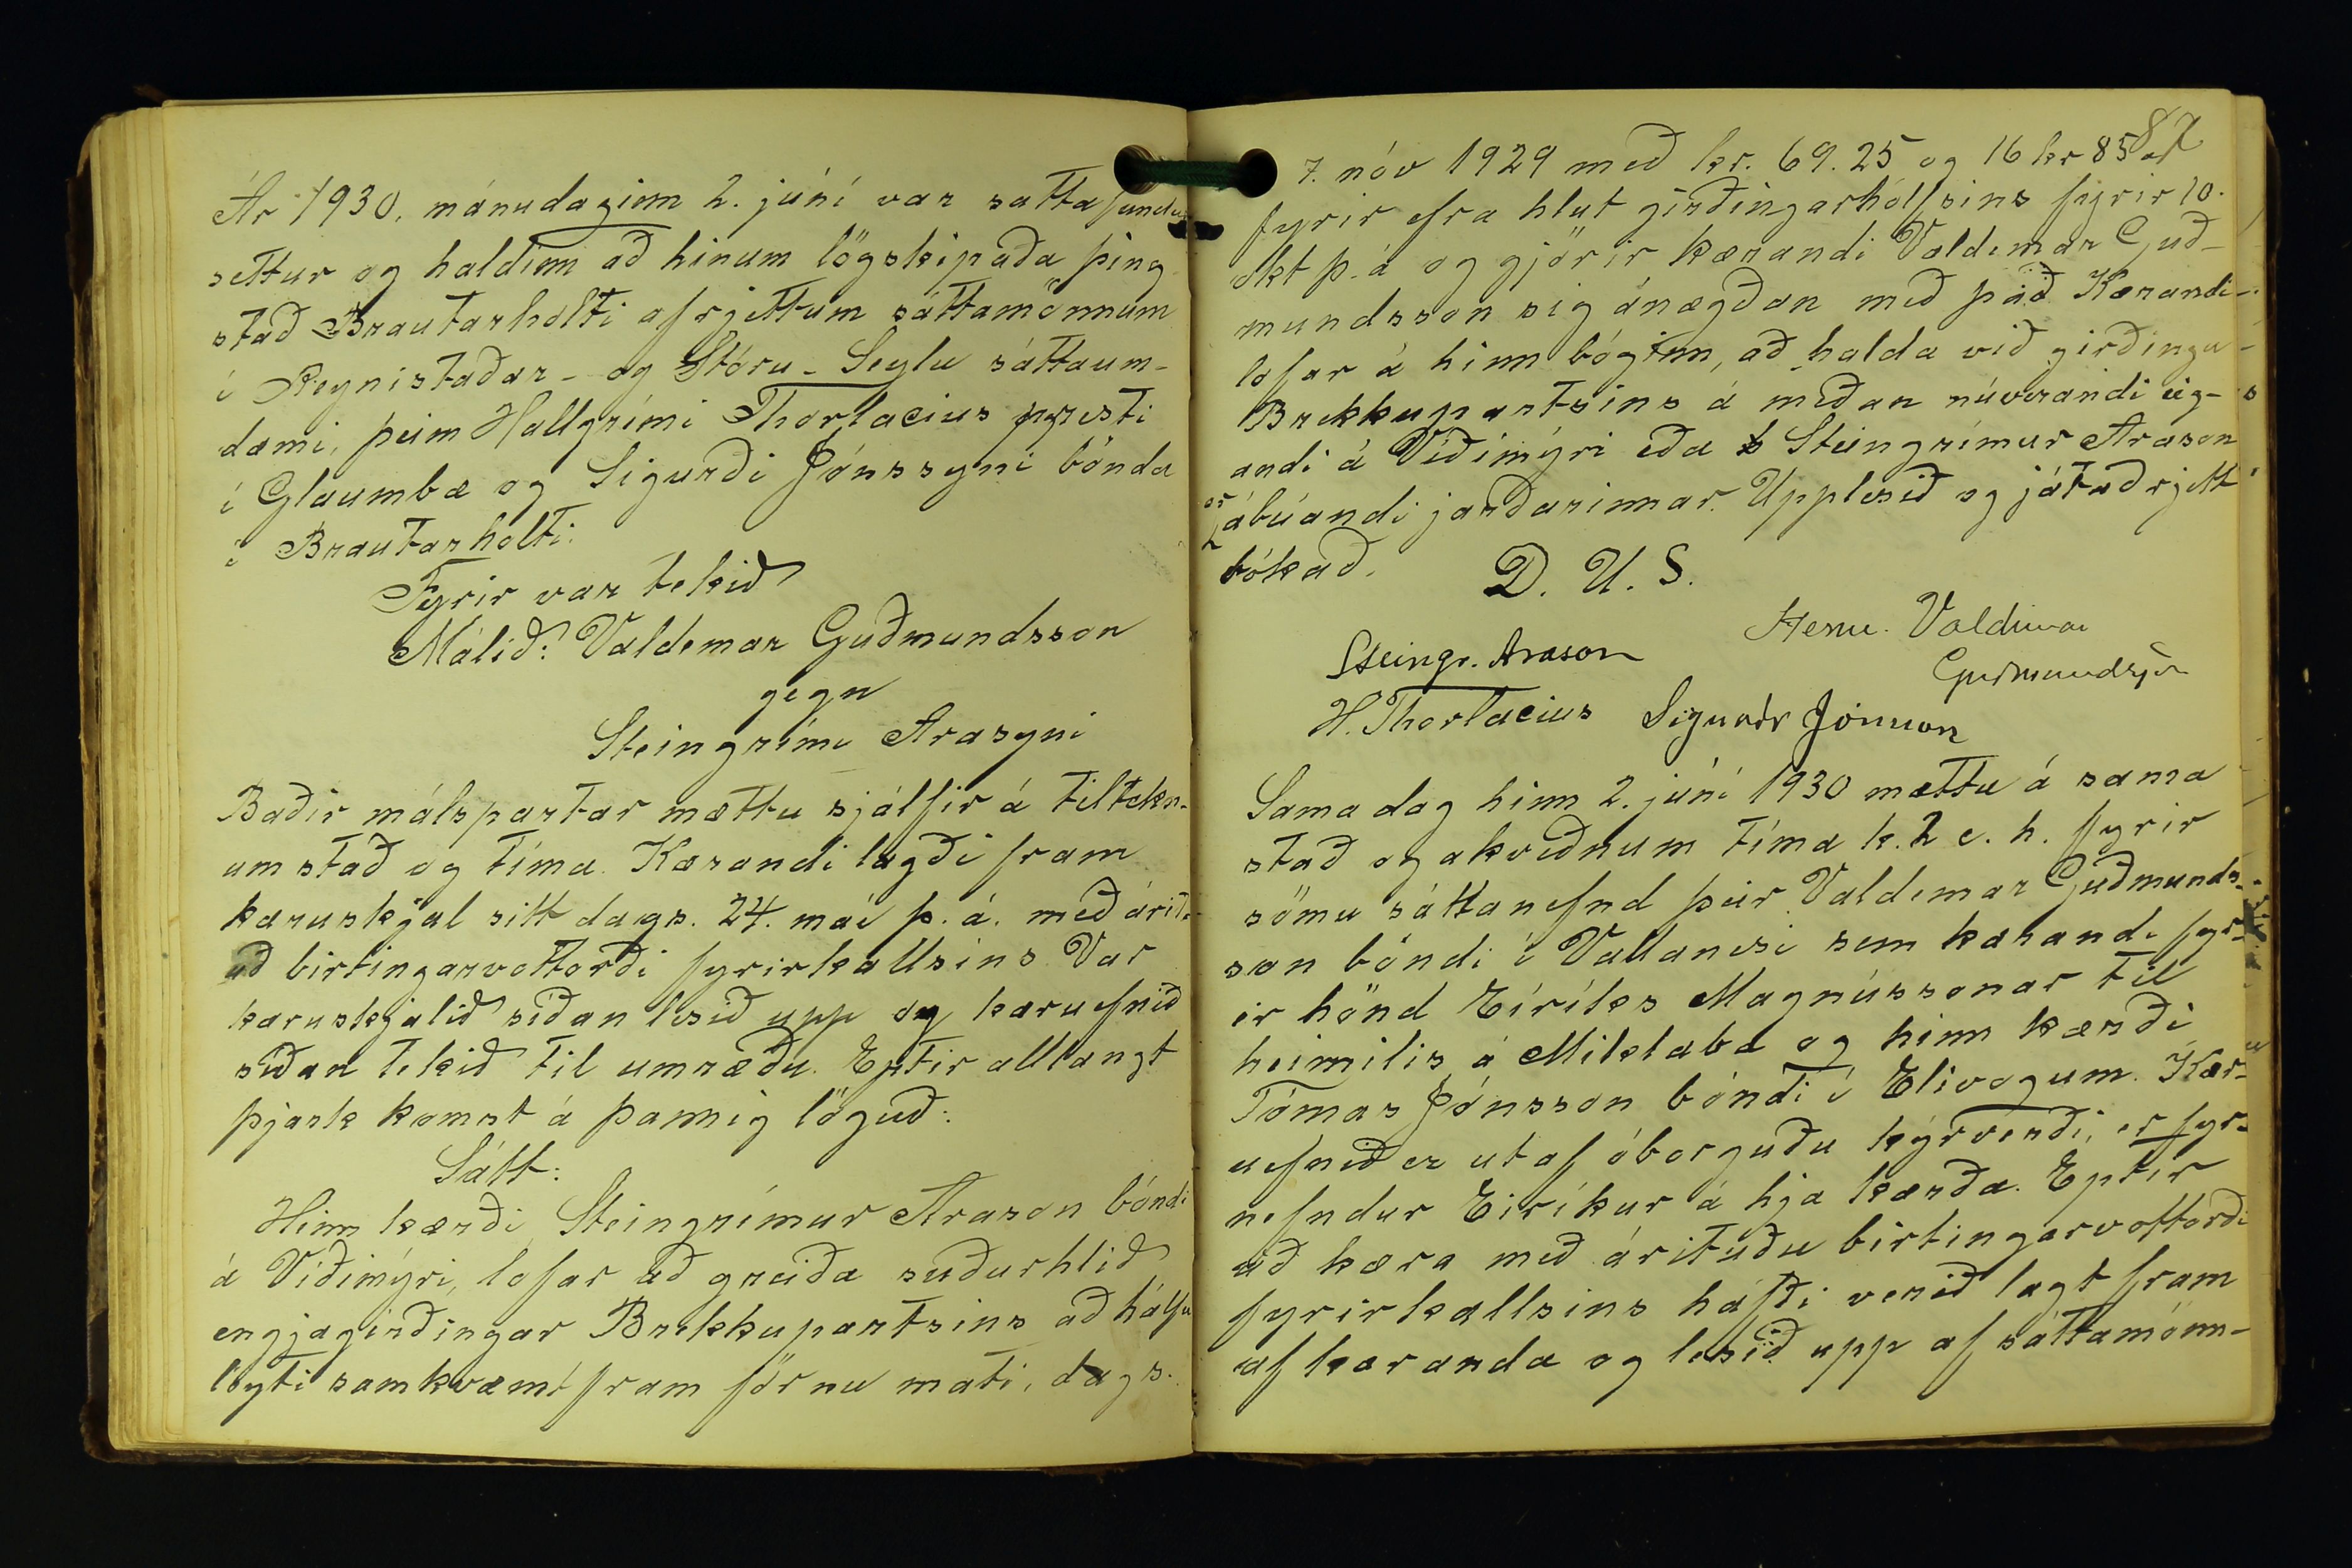 Ár 1930, mánudaginn 2. júní var sáttafundur
settur og haldinn að hinum lögskipaða þing
stað Brautarholti af rjettum sáttamönnum
í Reynistaðar- og Stóru-Seylu sáttaum-
dæmi, þeim Hallgrími Thorlacius presti
í Glaumbæ og Sigurði Jónssyni bónda
í Brautarholti.
Fyrir var tekið
Málið: Valdemar Guðmundsson
gegn
Steingrími Arasyni
Báðir málspartar mættu sjálfir á tiltekn-
um stað og tíma. Kærandi lagði fram
kæruskjal sitt dags. 24. maí þ. á. með árit-
að birtingarvottorði fyrirkallsins. Var
kæruskjalið síðan lesið upp og kæruefnið
síðan tekið til umræðu. Eptir alllangt
þjark komst á þannig löguð:
Sátt:
Hinn kærði Steingrímur Arason bóndi
á Víðimýri, lofar að greiða suðurhlið
engjagirðingar Brekkupartsins að hálfu
leyti samkvæmt fram förnu mati, dags.
87
7. nóv 1929 með kr. 69.25 og 16 kr 85
fyrir efra hlut girðingarhólfsins fyrir 10.
okt þ. á og gjörir kærandi Valdemar Guð-
mundsson sig ánægðan með það. Kærandi
lofar á hinn bóginn, að halda við girðingu
Brekkupartsins á meðan núverandi eig-
andi á Víðimýri eða Steingrímur Arason
er ábúandi jarðarinnar. Upplesið og játað rjett
bókað.
D. U. S.
Herm. Valdimar
Guðmundsson
Steingr. Arason
H. Thorlacius Sigurðr Jónsson
Sama dag hinn 2. júní 1930 mættu á sama
stað og ákveðnum tíma k. 2 e. h. fyrir
sömu sáttanefnd þeir Valdemar Guðmunds-
son bóndi í Vallanesi sem kærandi fyr-
ir hönd Eiríks Magnússonar til
heimilis á Miklabæ og hinn kærði
Tómas Jónsson bóndi í Elivogum. Kær-
uefnið er út af óborguðu kýrverði, er fyr-
nefndur Eiríkur á hjá kærða. Eptir
að kæra með árituðu birtingarvottorði
fyrirkallsins hafði verið lagt fram
af kæranda og lesið upp af sáttamönn-